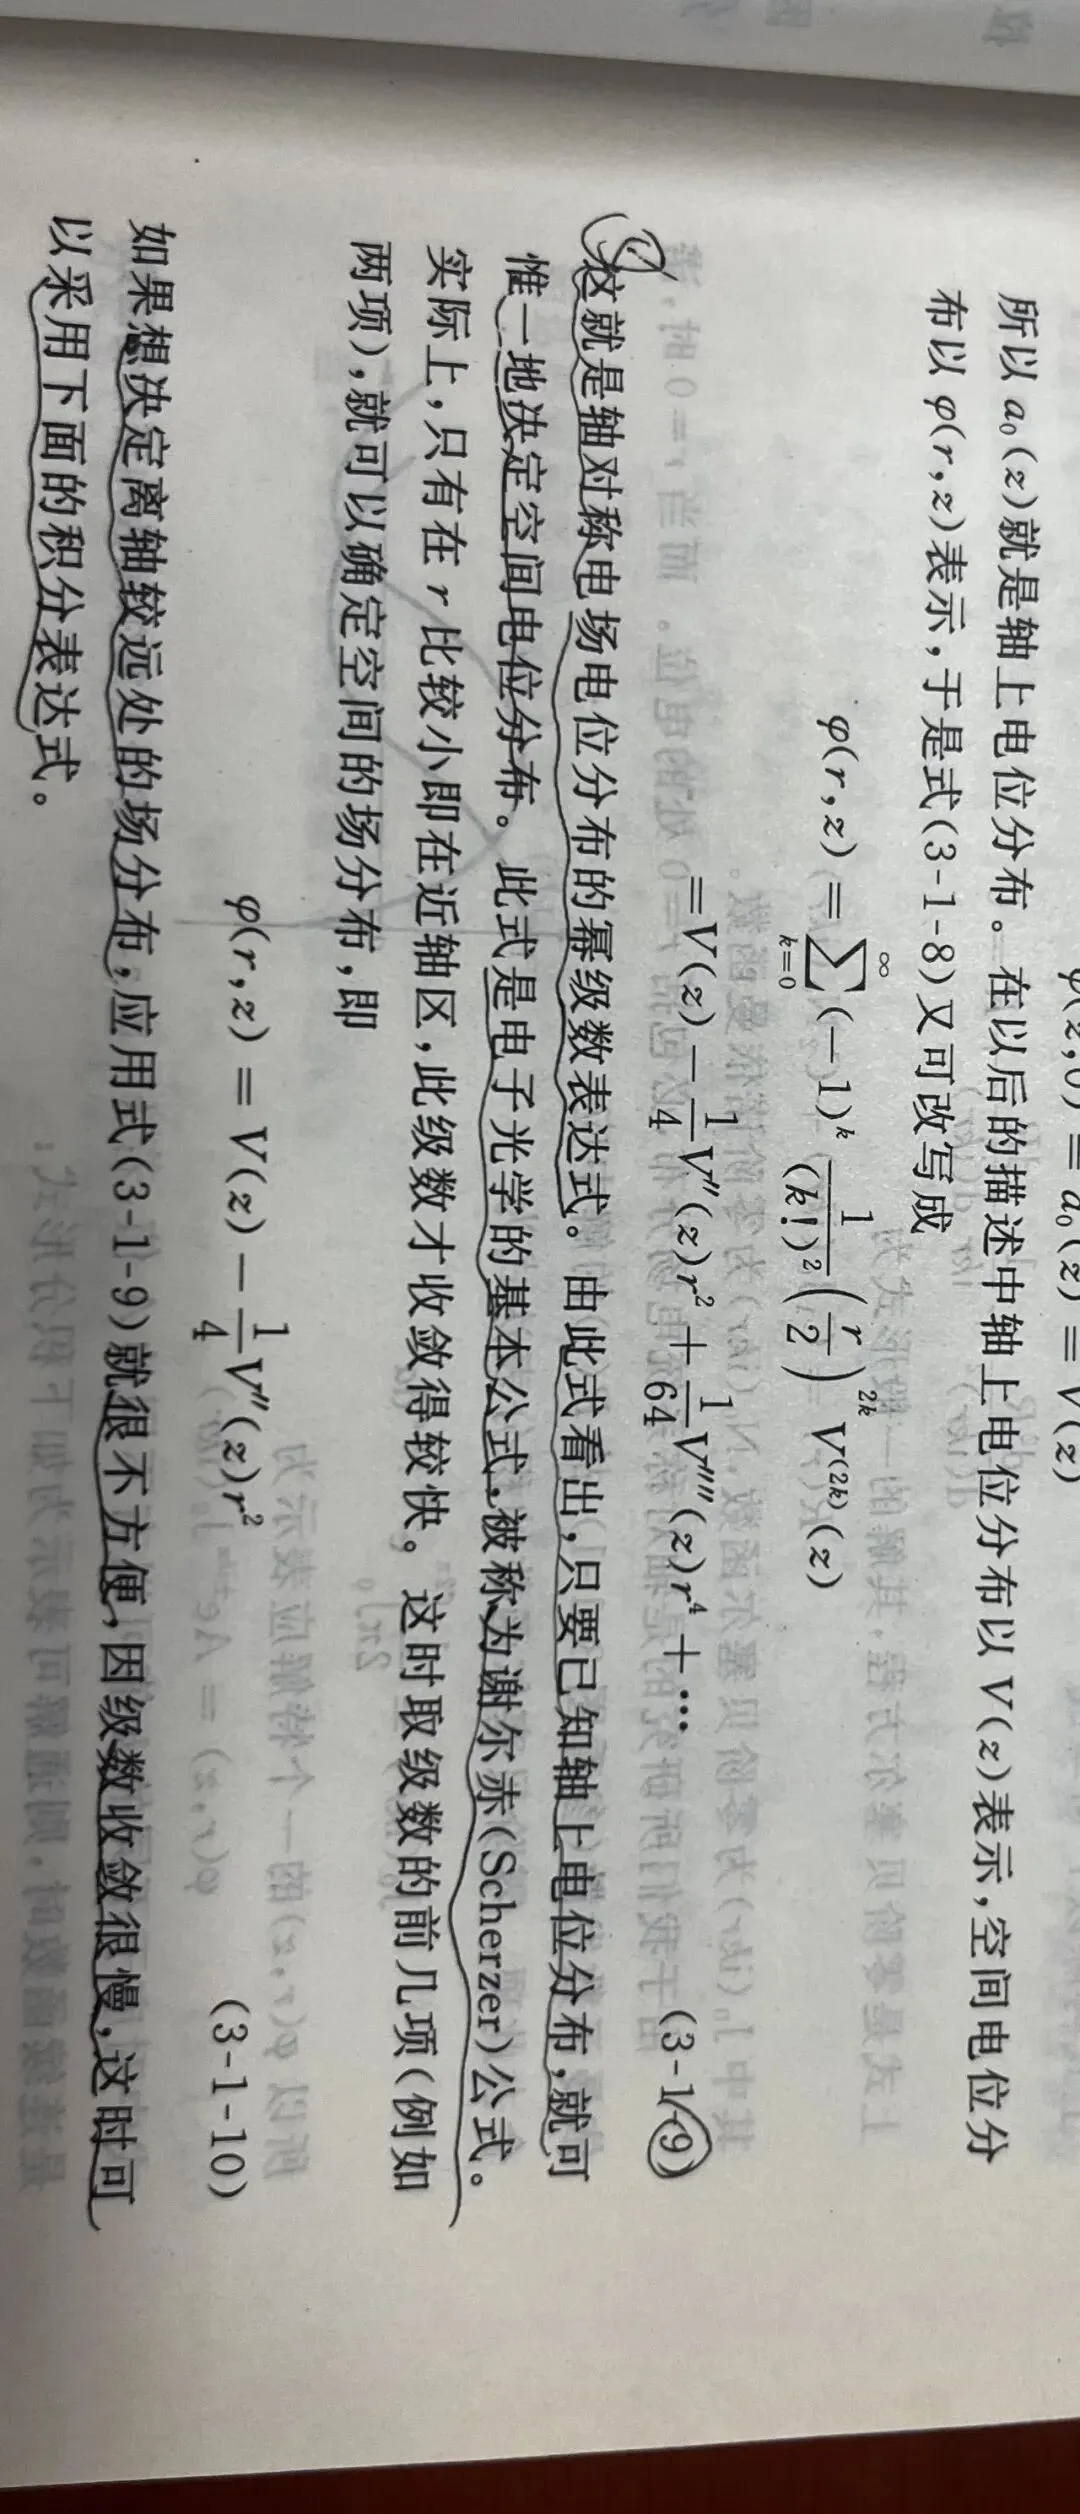 φ(z,0) = a₀(z) = V(z)
所以 a₀(z)就是轴上电位分布。在以后的描述中轴上电位分布以 V(z)表示,空间电位分
布以 φ(r,z)表示,于是式(3-1-8)又可改写成
φ(r,z) = ∑_{k=0}^{∞} (-1)^k \frac{1}{(k!)^2} (\frac{r}{2})^{2k} V^{(2k)}(z)
=V(z)-\frac{1}{4}V″(z)r²+\frac{1}{64}V″″(z)r⁴+… (3-1-9)
这就是轴对称电场电位分布的幂级数表达式。由此式看出,只要已知轴上电位分布,就可
惟一地决定空间电位分布。此式是电子光学的基本公式,被称为谢尔赤(Scherzer)公式。
实际上,只有在 r 比较小即在近轴区,此级数才收敛得较快。这时取级数的前几项(例如
两项),就可以确定空间的场分布,即
φ(r,z) = V(z)-\frac{1}{4}V″(z)r² (3-1-10)
如果想决定离轴较远处的场分布,应用式(3-1-9)就很不方便,因级数收敛很慢,这时可
以采用下面的积分表达式。